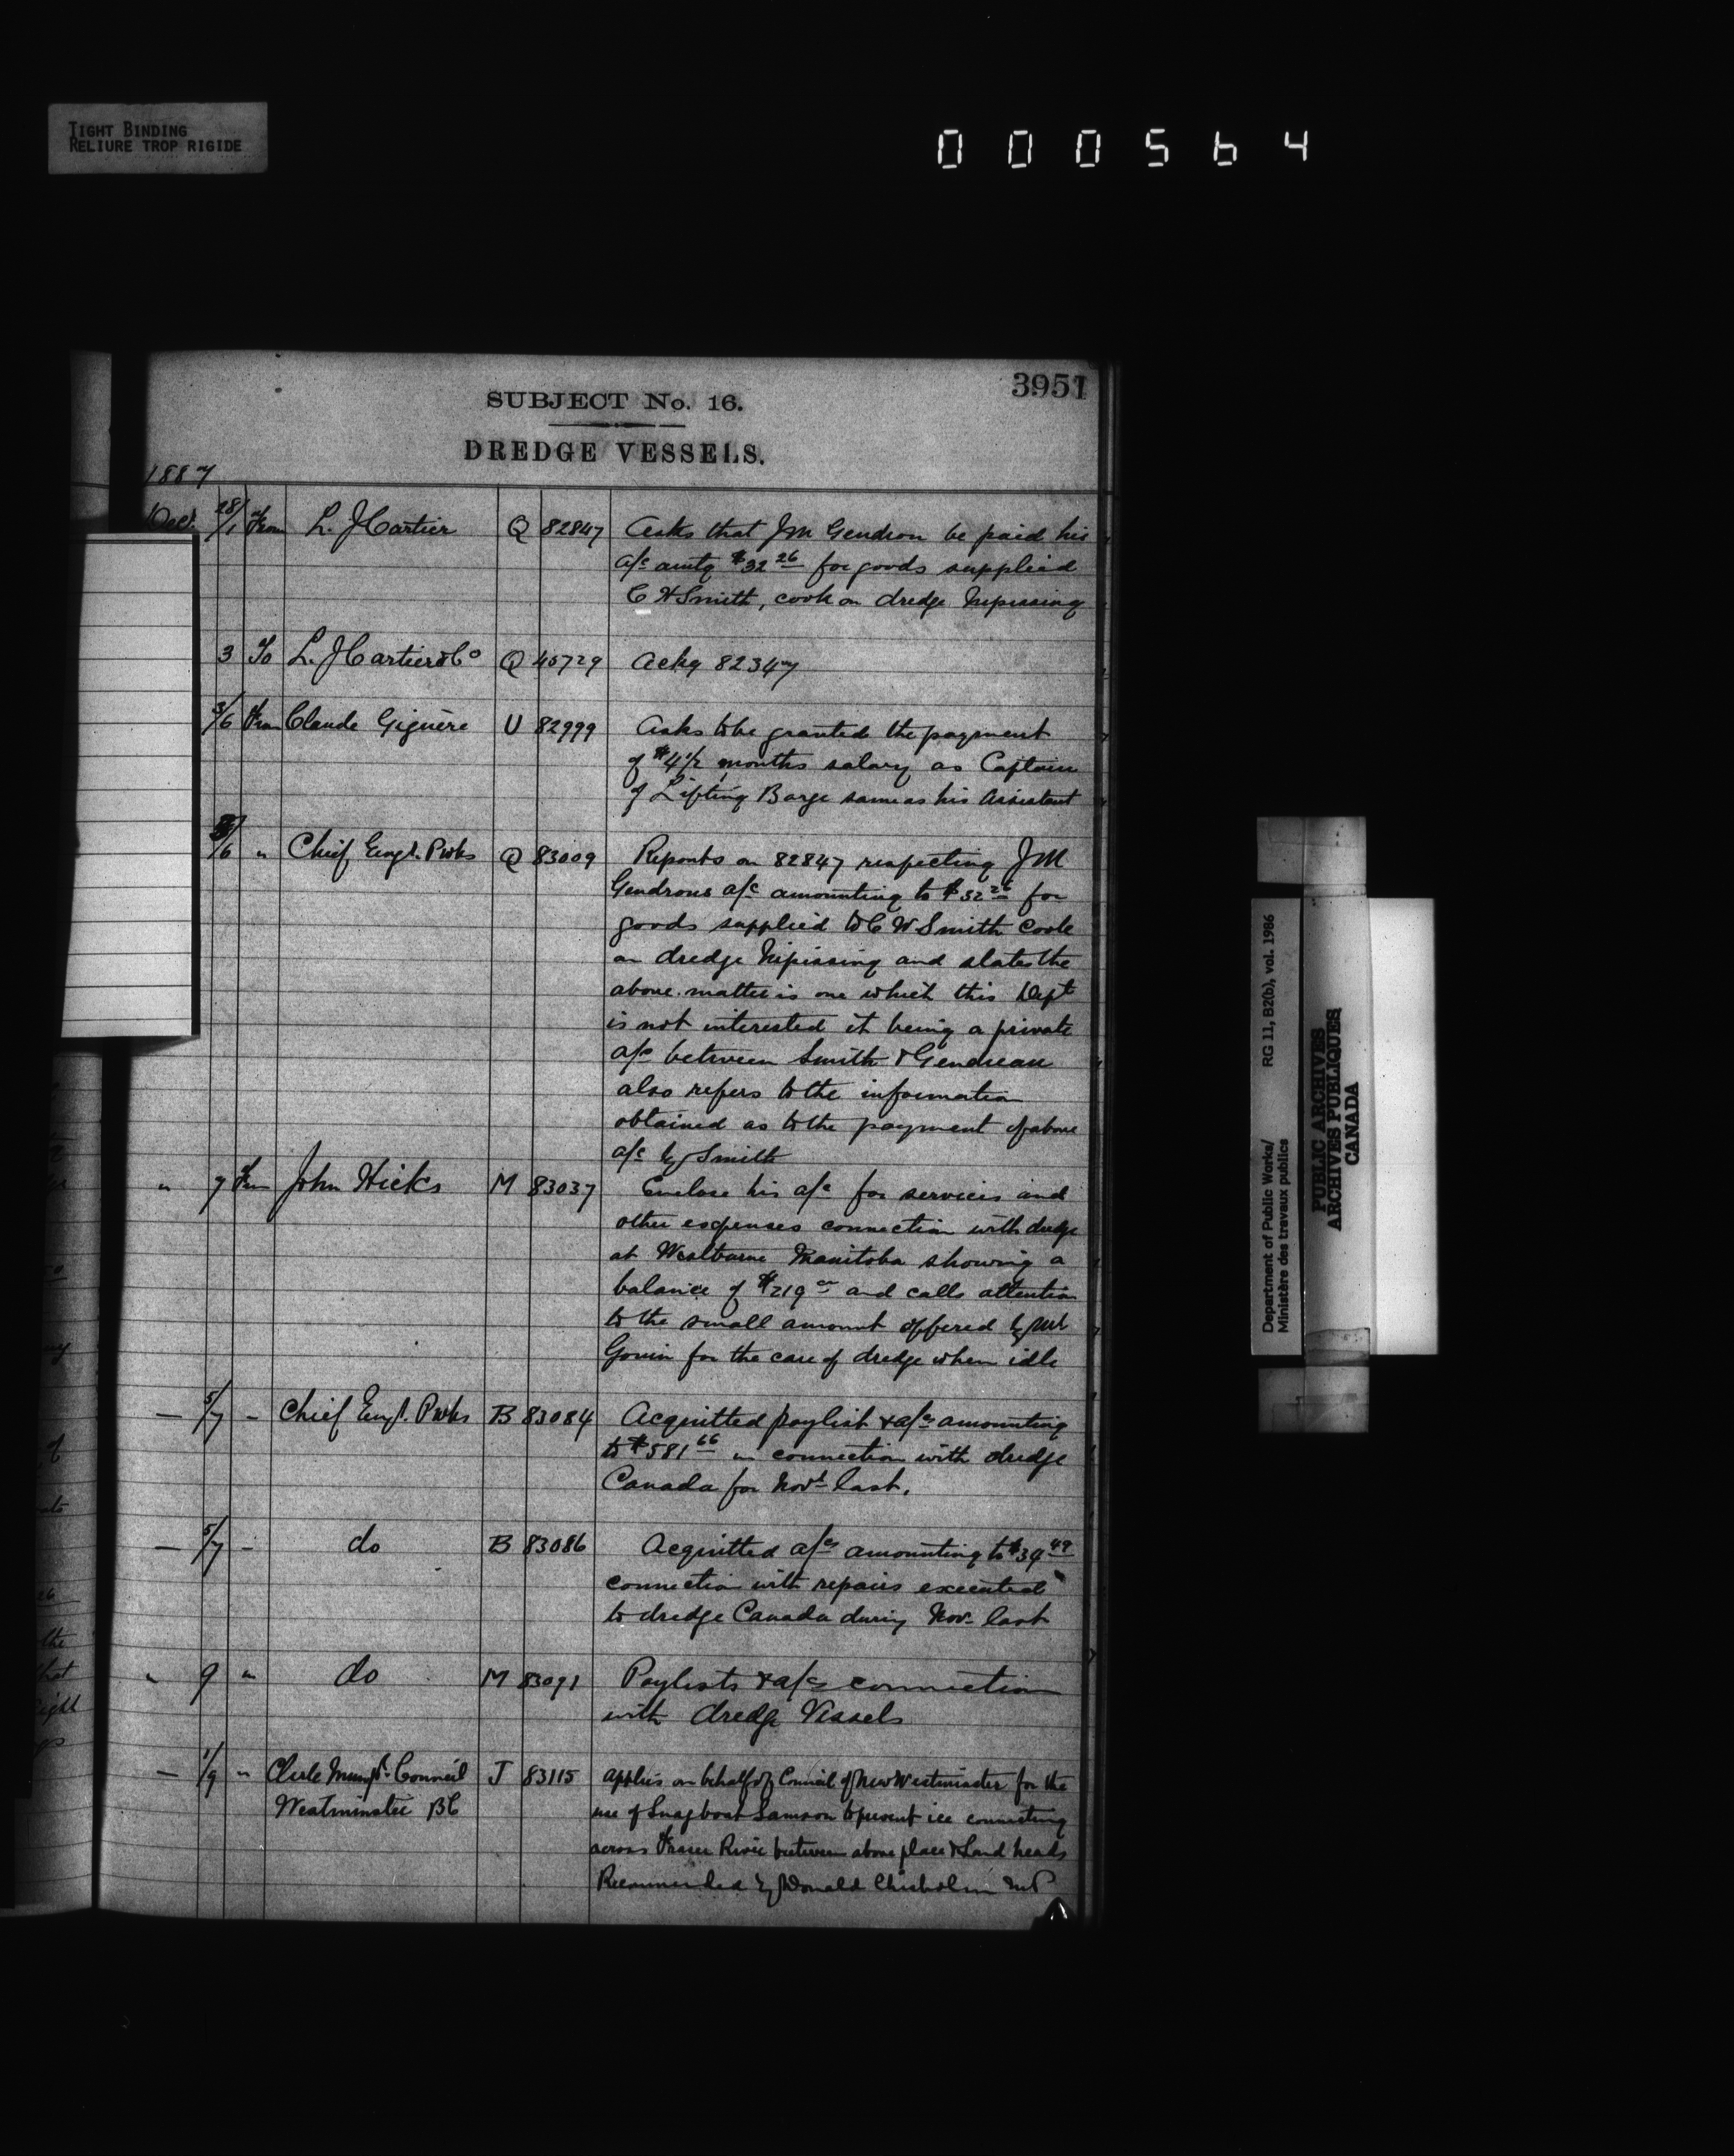 TIGHT BINDING
RELIURE TROP RIGIDE
000564
3951
SUBJECT No. 16.
DREDGE VESSELS.
1887
Dec. 28/1 From L. J Cartier Q 82847 Asks that J M Gendron be paid his
a/c amtg $32 26 for goods supplied
C H Smith, cook on dredge Nipissing
3 To L. J Cartier & Co Q 45729 Ackg 82347
3/6 From Claude Giguère U 82999 Asks to be granted the payment
of $4 1/2 months salary as Captain
of Lifting Barge same as his Assistant
/6 " Chief Engr. Pwks Q 83009 Reports on 82847 respecting J M
Gendrons a/c amounting to $32 26 for
goods supplied to C W Smith Cook
on dredge Nipissing and states the
above matter is one which this Dept
is not interested it being a private
a/c between Smith & Gendreau
also refers to the information
obtained as to the payment of above
a/c by Smith
" 7 From John Hicks M 83037 Enclose his a/c for services and
other expenses connection with dredge
at Westburne Manitoba showing a
balance of $219 and calls attention
to the small amount offered by Mr
Gouin for the care of dredge when idle
— 5/7 - Chief Engr. Pwks B 83084 Acquitted paylist & a/cs amounting
to $581 66 in connection with dredge
Canada for Novr last.
— 5/7 - do B 83086 Acquitted a/cs amounting to $39 49
connection with repairs executed
to dredge Canada during Nov. last
" 9 " do M 83091 Paylists & a/cs connection
with dredge Vessels
— 1/9 " Clerk Municipl. Council J 83115 Applies on behalf of Council of New Westminster for the
Westminster BC use of Snagboat Samson to prevent ice connecting
across Fraser River between above place & Sand heads
Recommended by Donald Chisholm M P
Department of Public Works/ RG 11, B2(b), vol. 1986
Ministère des travaux publics
PUBLIC ARCHIVES
ARCHIVES PUBLIQUES
CANADA